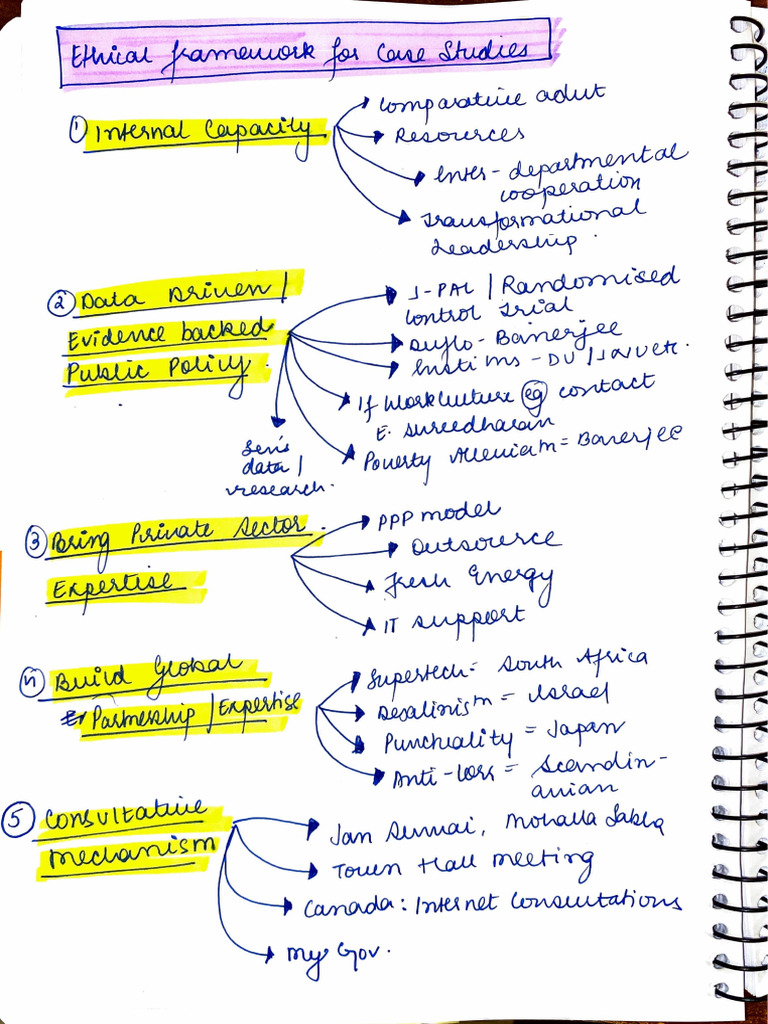 Ethical framework for Case Studies
① Internal Capacity
Comparative advt
Resources
Inter-departmental
cooperation
Transformational
Leadership.
② Data Driven /
Evidence backed
Public Policy.
J-PAL / Randomised
Control Trial
Duflo-Banerjee
Instims - DU / JNU etc.
If Work Culture eg contact
E. Sureedharan
Poverty Alleviam = Banerjee
data /
research.
③ Bring Private Sector
Expertise
PPP model
Outsource
Fresh Energy
IT support
④ Build Global
Partnership / Expertise
Supertech = South Africa
Desalinism = Israel
Punctuality = Japan
Anti-loss = Scandin-
avian
⑤ Consultative
Mechanism
Jan Sunwai, Mohalla Sabha
Town Hall Meeting
Canada: Internet Consultations
My Gov.